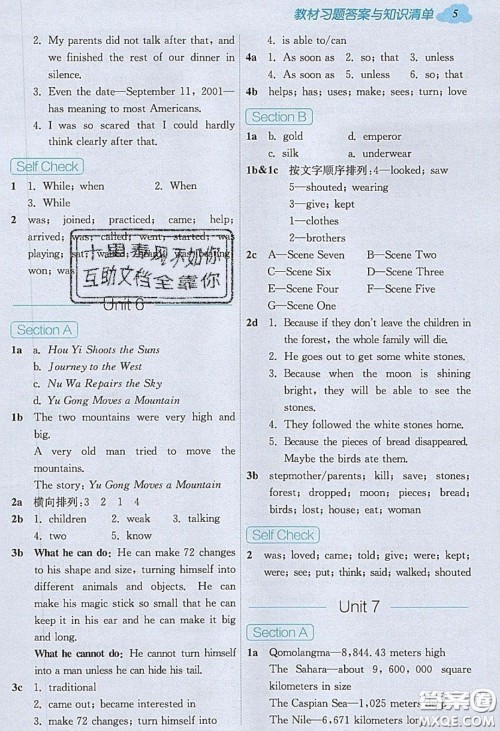 教材习题答案与知识清单 5
2. My parents did not talk after that, and
we finished the rest of our dinner in
silence.
3. Even the date—September 11, 2001—
has meaning to most Americans.
4. I was so scared that I could hardly
think clearly after that.
Self Check
1 1. While; when 2. When
3. While
2 was; joined; practiced; came; help;
arrived; was; called; went; started; was
playing; sat;
won; was
互助文档全靠你
Unit 6
Section A
1a a. Hou Yi Shoots the Suns
b. Journey to the West
c. Nu Wa Repairs the Sky
d. Yu Gong Moves a Mountain
1b The two mountains were very high and
big.
A very old man tried to move the
mountains.
The story: Yu Gong Moves a Mountain
2a 横向排列:3 2 1 4
2b 1. children 2. weak 3. talking
4. two 5. know
3b What he can do: He can make 72 changes
to his shape and size, turning himself into
different animals and objects. He can
make his magic stick so small that he can
keep it in his ear and he can make it big
and long.
What he cannot do: He cannot turn himself
into a man unless he can hide his tail.
3c 1. traditional
2. came out; became interested in
3. make 72 changes; turn himself into
4. is able to/can
4a 1. As soon as 2. so; that 3. unless
4. As soon as 5. unless 6. so; that
4b helps; has; uses; make; sees; turn; love
Section B
1a b. gold d. emperor
c. silk a. underwear
1b&1c 按文字顺序排列:4—looked; saw
5—shouted; wearing
3—give; kept
1—clothes
2—brothers
2c A—Scene Seven B—Scene Two
C—Scene Six D—Scene Three
E—Scene Four F—Scene Five
G—Scene One
2d 1. Because if they don't leave the children in
the forest, the whole family will die.
2. He goes out to get some white stones.
3. Because when the moon is shining
bright, they will be able to see the
stones.
4. They followed the white stones home.
5. Because the pieces of bread disappeared.
Maybe the birds ate them.
3b stepmother/parents; kill; save; stones;
forest; dropped; moon; pieces; bread;
birds; lost; house; eat; woman
Self Check
2 was; loved; came; told; give; were; kept;
were; see; put; think; said; walked; shouted
Unit 7
Section A
1a Qomolangma—8,844.43 meters high
The Sahara—about 9,600,000 square
kilometers in size
The Caspian Sea—1,025 meters deep
The Nile—6,671 kilometers long
答案圈
MXQE.COM